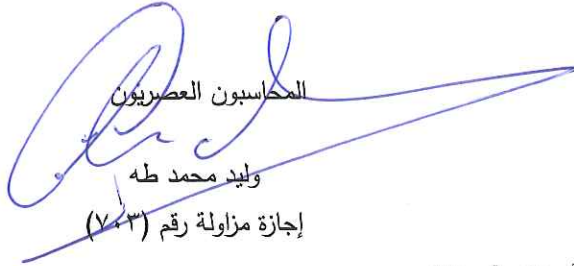 المحاسبون العصريون
وليد محمد طه
إجازة مزاولة رقم (٧٠٣)